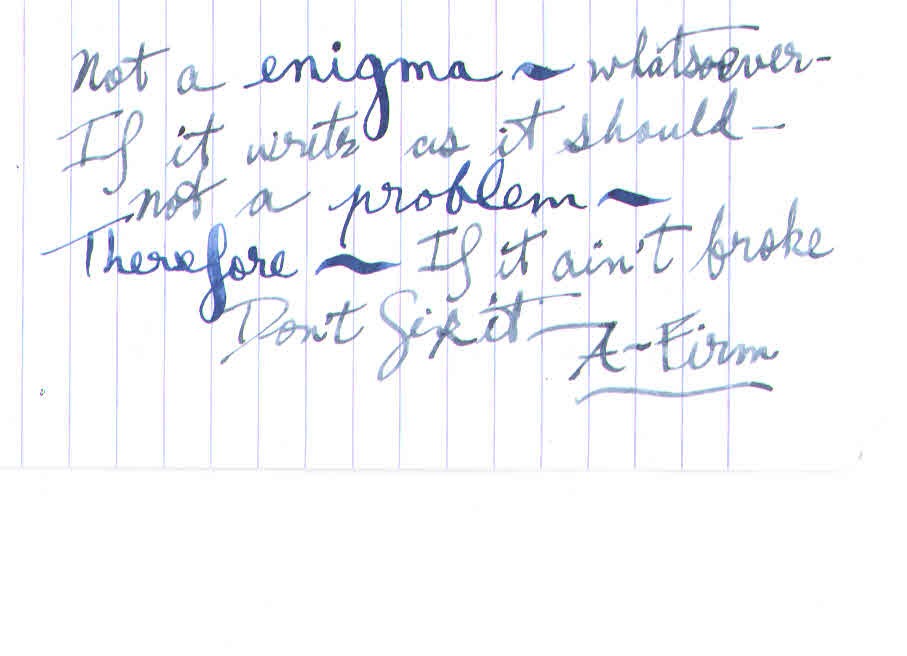 Not a enigma ~ whatsoever-
If it writes as it should-
not a problem ~
Therefore ~ If it ain't broke
Don't fix it - A-Firm